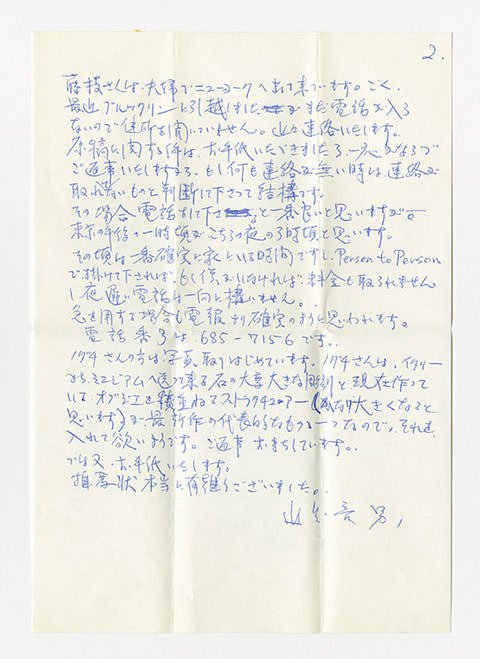 2.
藤枝さんは、夫婦でニューヨークへ出て来ています。ごく
最近ブルックリンに引越しましたが まだ電話が入ら
ないので住所を聞いていません。 連絡いたします。
原稿に関する件は、お手紙いただきましたら、一応かならずご
ご返事いたしますから、もし何も連絡が無い時は、連絡が
取れないものと判断して下さって結構です。
その場合電話をして下さると一番良いと思いますが。
東京の午後の一時頃がこちらの夜の 時頃と思います。
その頃は一番確実に家にいる時間ですし、Person to Person
で掛けて下されば、もし僕がいなければ、料金も取られません
し、夜遅い電話は一向に構いません。
急を用する場合も電報より確実のように思われます。
電話番号は 685-7156 です。
ノグチさんの方は、写真取りはじめています。ノグチさんは、イタリー
からミュジアムへ送って来る石の大変大きな彫刻と現在作って
いる、 積重ねるストラクチュアー(かなり大きくなると
思います)が最新作の代表的なものの一つなので、それを
入れて欲いようです。ご返事お待ちしています。
では又、お手紙いたします。
推薦状本当に有難うございました。